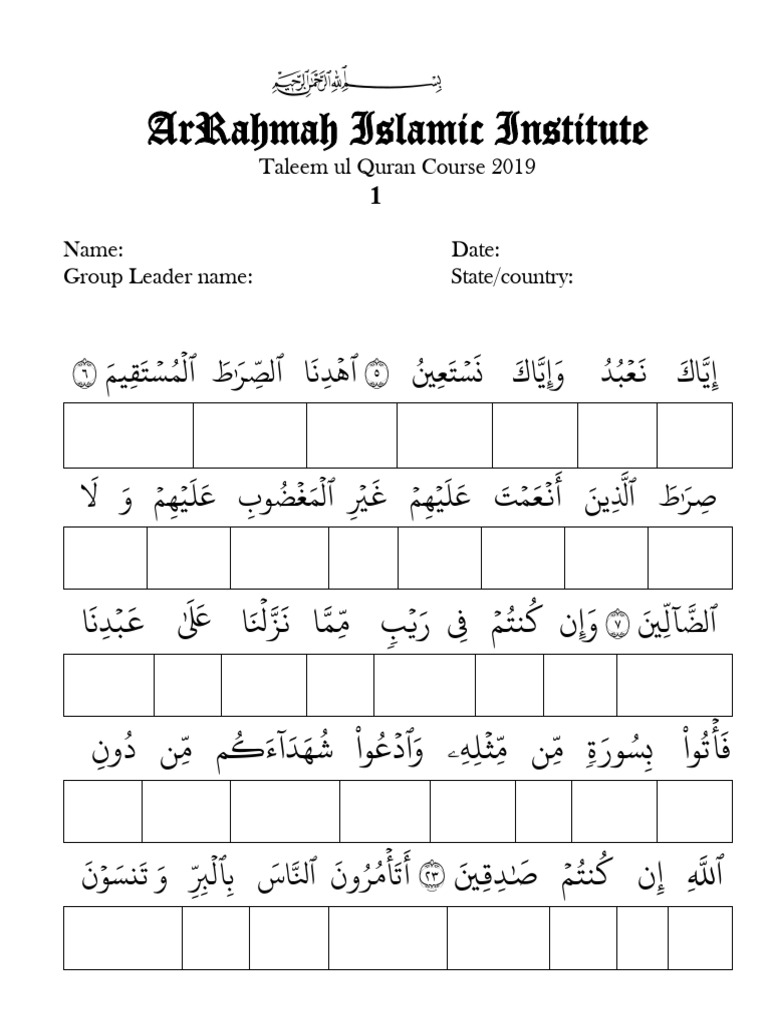 بِسْمِ ٱللَّهِ ٱلرَّحْمَٰنِ ٱلرَّحِيمِ
ArRahmah Islamic Institute
Taleem ul Quran Course 2019
1
Name: Date:
Group Leader name: State/country:
إِيَّاكَ نَعْبُدُ وَإِيَّاكَ نَسْتَعِينُ ٥ ٱهْدِنَا ٱلصِّرَٰطَ ٱلْمُسْتَقِيمَ ٦
صِرَٰطَ ٱلَّذِينَ أَنْعَمْتَ عَلَيْهِمْ غَيْرِ ٱلْمَغْضُوبِ عَلَيْهِمْ وَ لَا
ٱلضَّآلِّينَ ٧ وَإِن كُنتُمْ فِى رَيْبٍ مِّمَّا نَزَّلْنَا عَلَىٰ عَبْدِنَا
فَأْتُوا۟ بِسُورَةٍ مِّن مِّثْلِهِۦ وَٱدْعُوا۟ شُهَدَآءَكُم مِّن دُونِ
ٱللَّهِ إِن كُنتُمْ صَٰدِقِينَ ٢٣ أَتَأْمُرُونَ ٱلنَّاسَ بِٱلْبِرِّ وَ تَنسَوْنَ